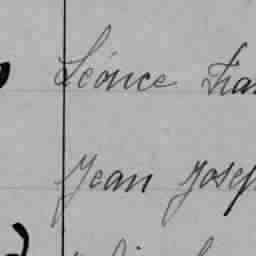 Léonce Fran
Jean Josep